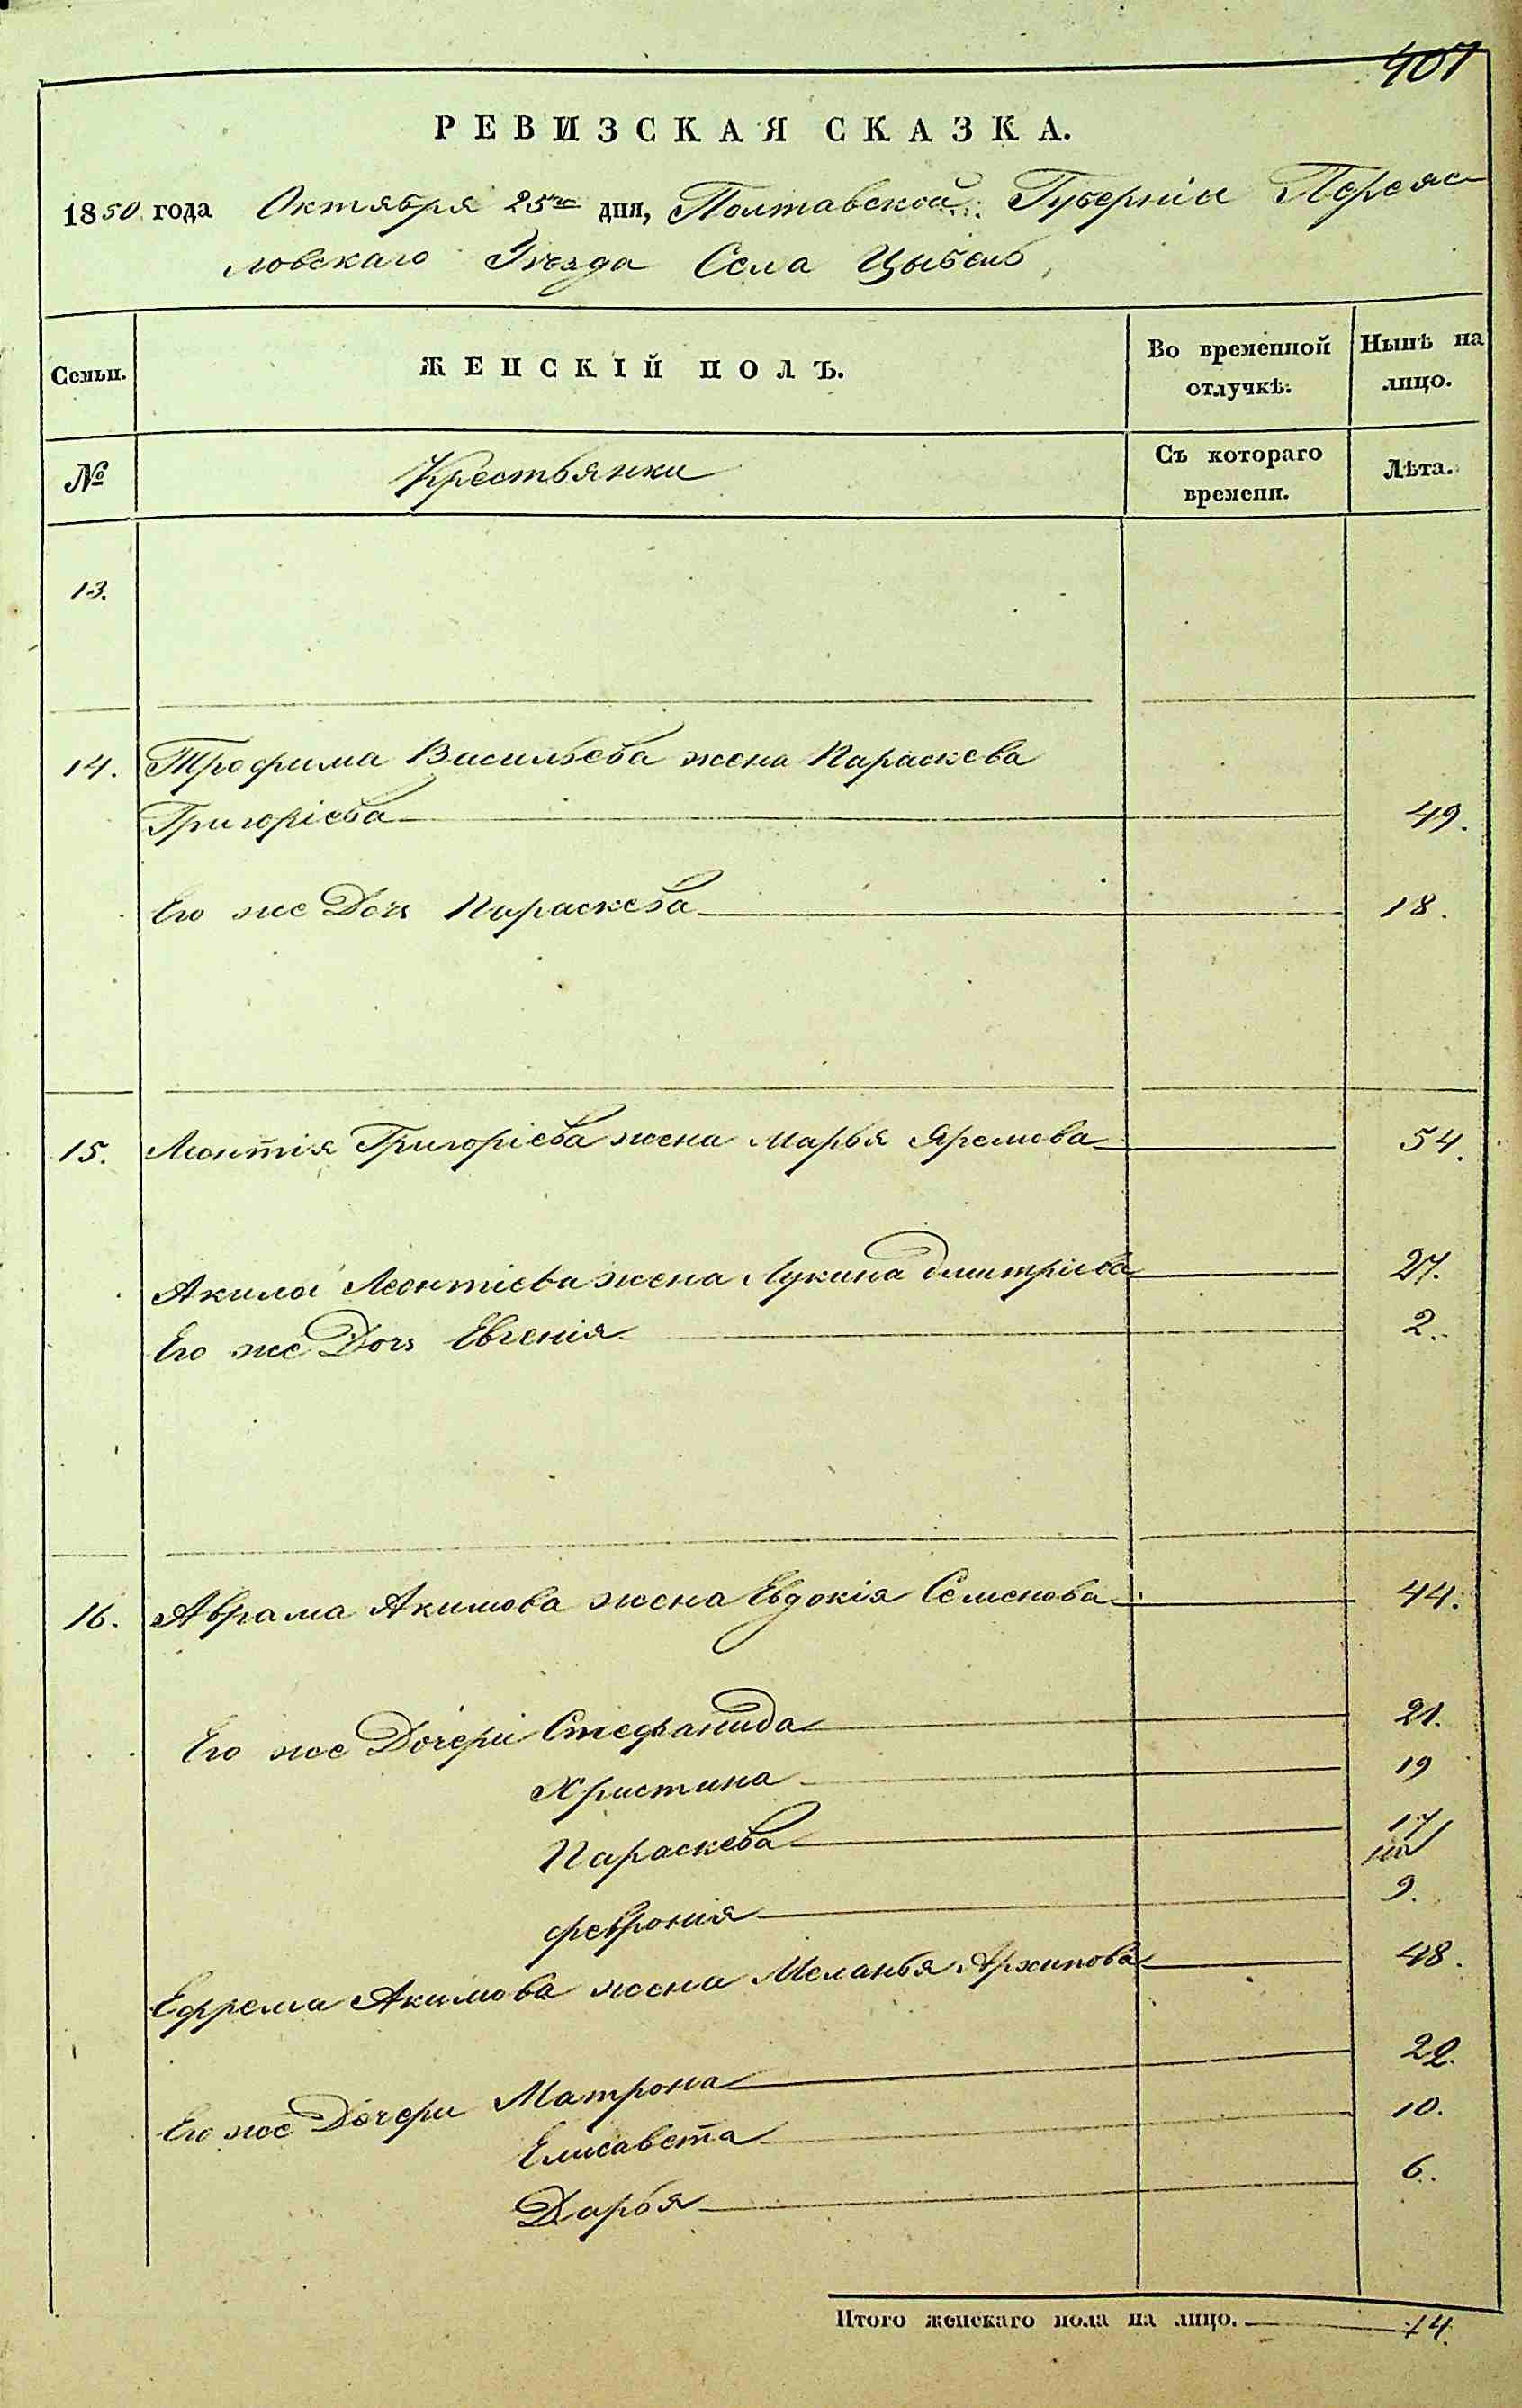 407
РЕВИЗСКАЯ СКАЗКА.
1850 года Октября 25го дня, Полтавской Губерніи Переяс-
ловскаго Уѣзда Села Цыбель
Семьи. ЖЕНСКІЙ ПОЛЪ. Во временной отлучкѣ. Нынѣ на лицо.
№ Крестьянки Съ котораго времени. Лѣта.
13.
14. Трофима Васильева жена Параскева
Григоріева 49.
Его же Дочь Параскева 18.
15. Леонтія Григоріева жена Марья Яремова 54.
Акилы Леонтіева жена Лукина Дмитріева 27.
Его же Дочь Евгенія 2.
16. Аврама Акимова жена Евдокія Семенова 44.
Его же Дочери Стефанида 21.
Христина 19
Параскева 17
Февронія 9.
Ефрема Акимова жена Меланья Архипова 48.
Его же Дочери Матрона 22.
Елисавета 10.
Дарья 6.
Итого женскаго пола на лицо. 14.